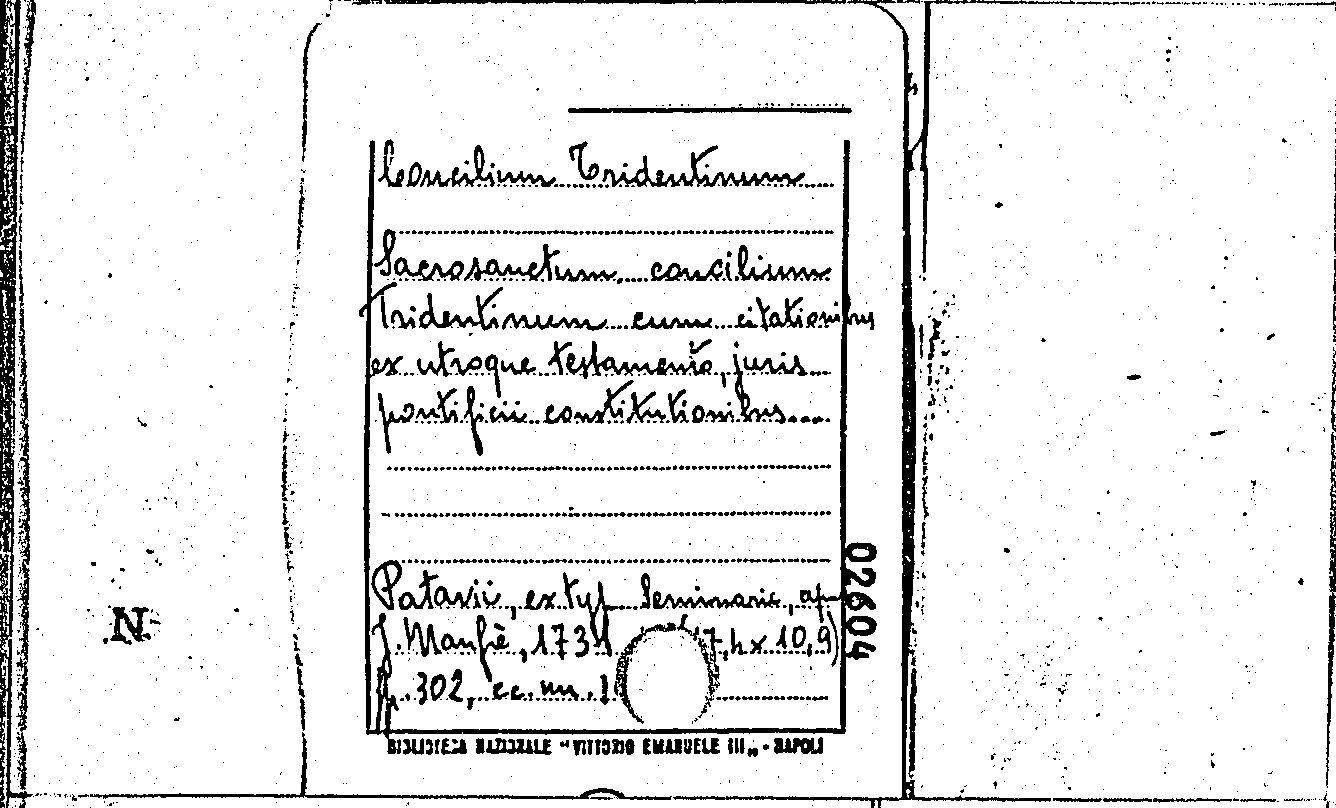 Concilium Tridentinum
Sacrosanctum concilium
Tridentinum cum citationibus
ex utroque testamento, juris
pontificii constitutionibus...
Patavii, ex typ. Seminarii,
J. Manfrè, 173 (17, h x 10,9)
pp. 302, cc. nn. 1
BIBLIOTECA NAZIONALE "VITTORIO EMANUELE III„ - NAPOLI
02604
N